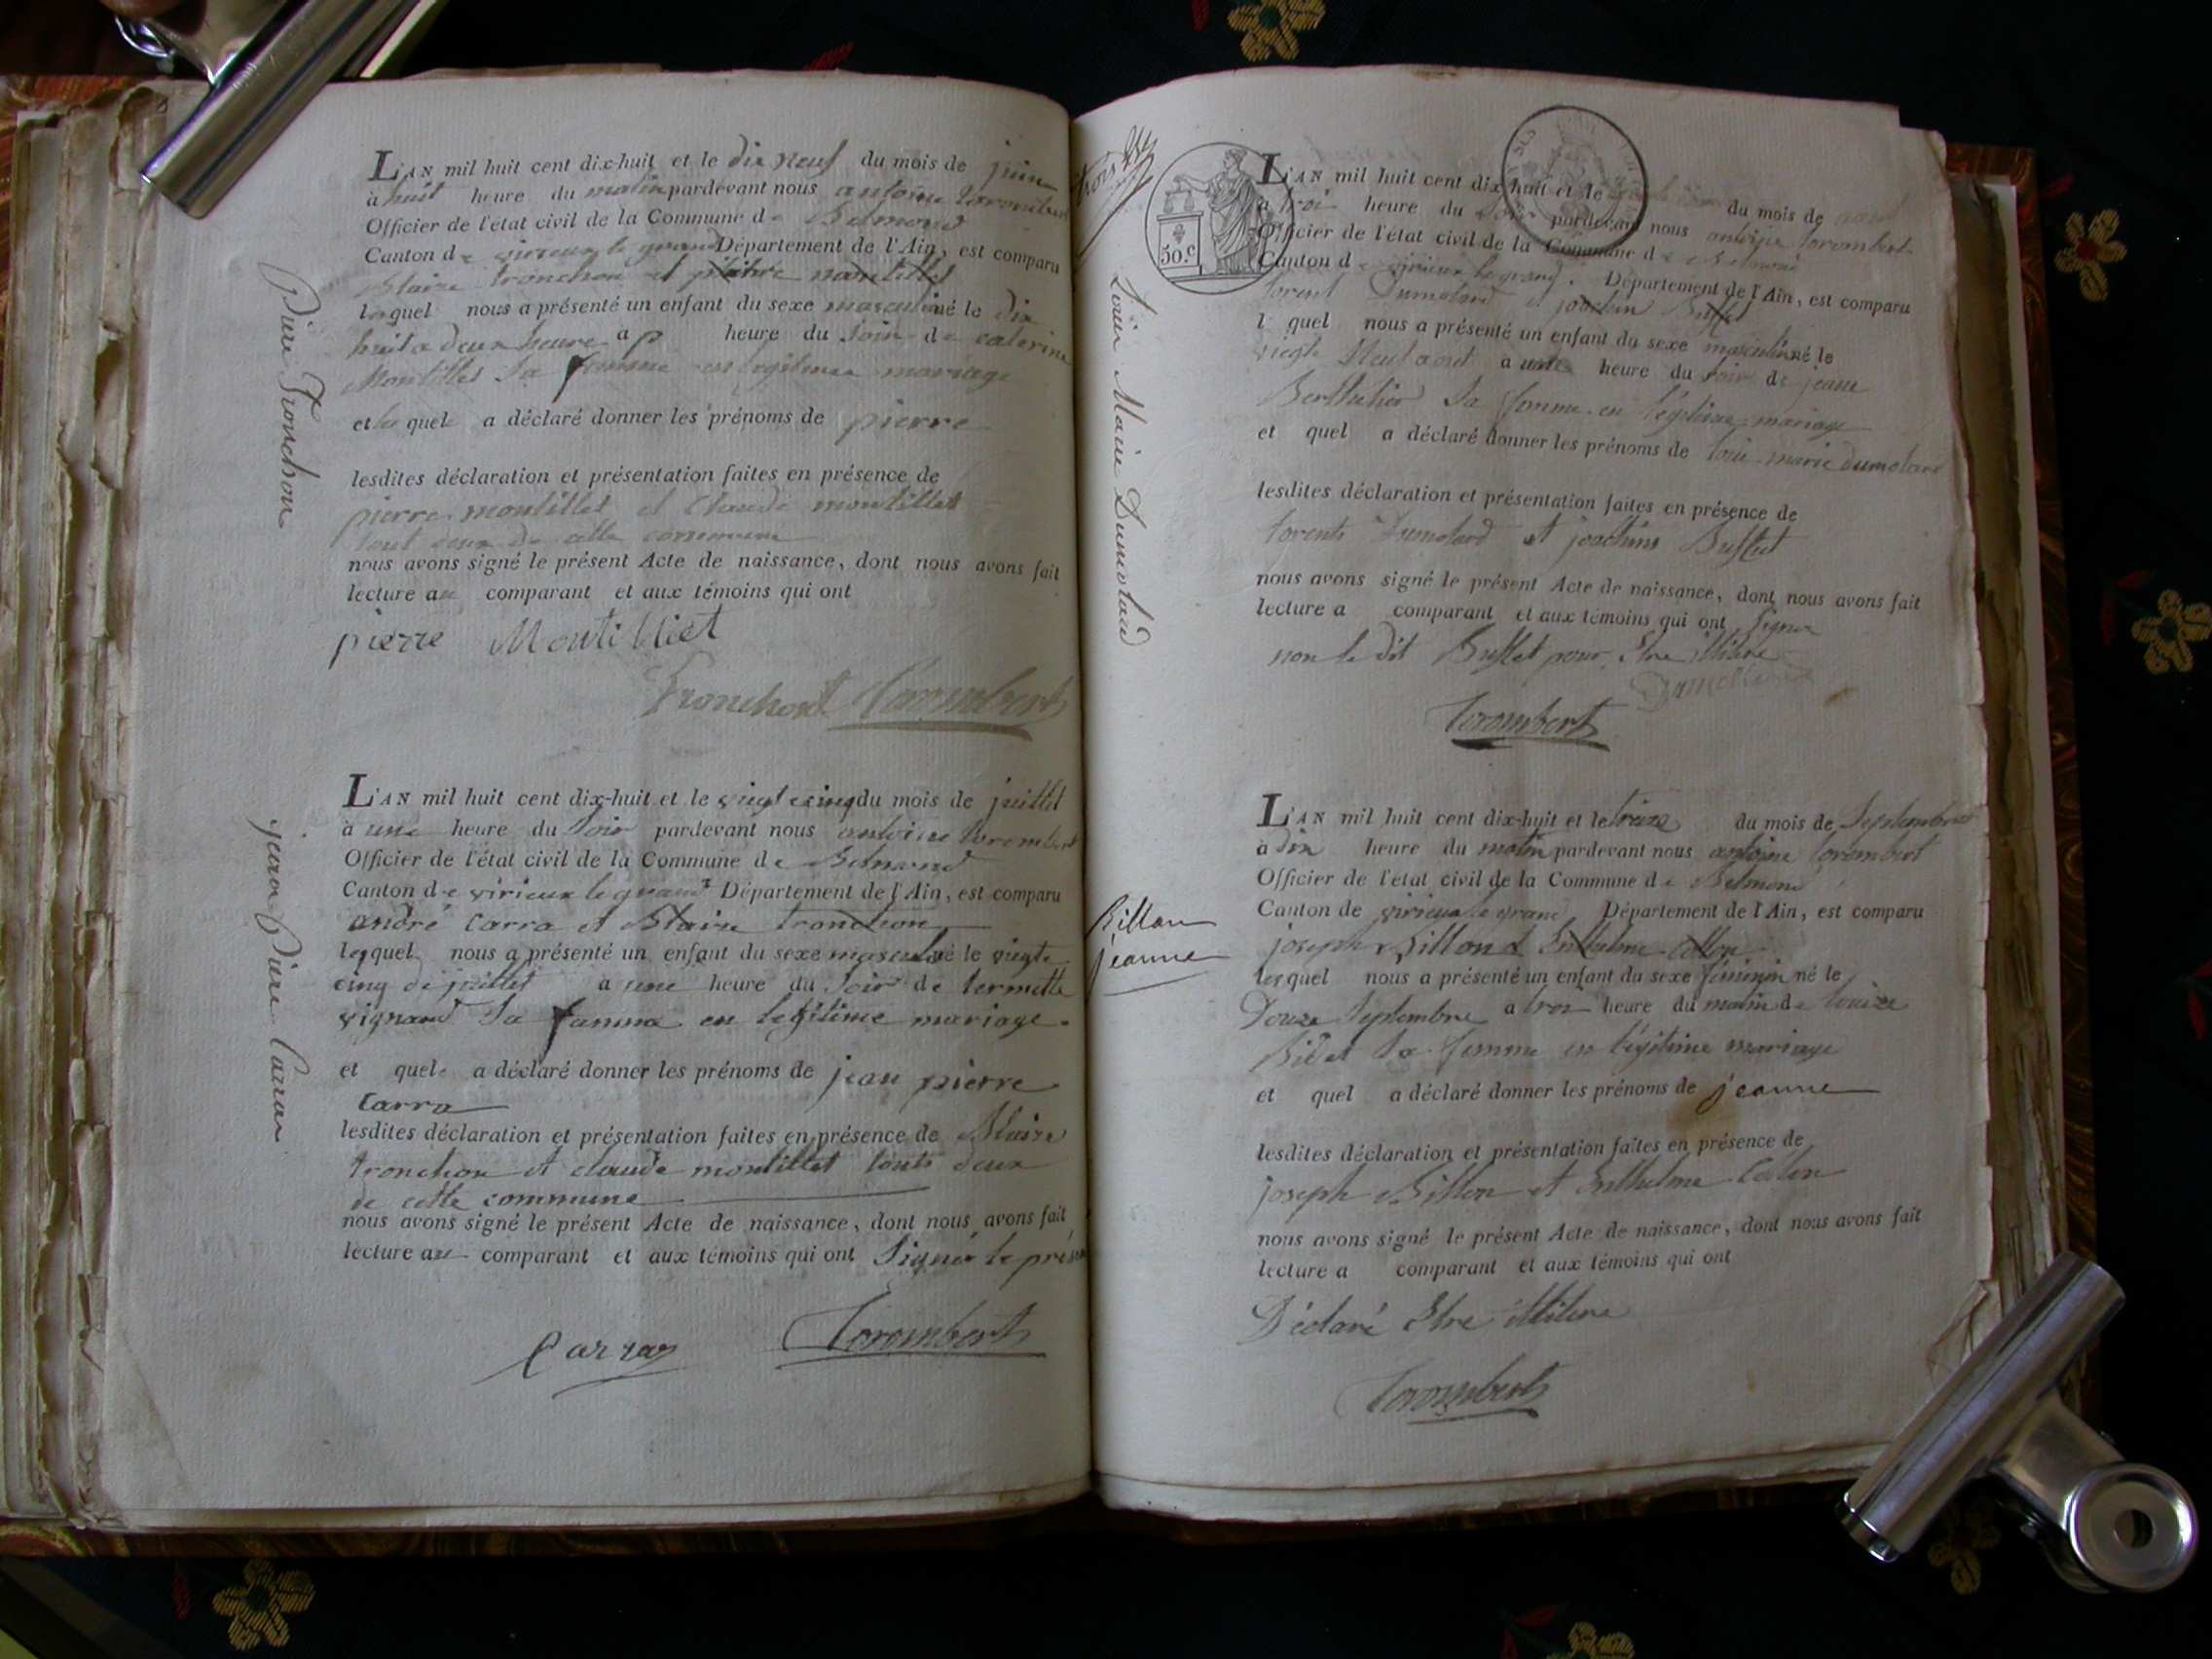 L'AN mil huit cent dix-huit et le dix neuf du mois de juin
à huit heure du matin pardevant nous antoine torombert
Officier de l'état civil de la Commune de Belmond
Canton de virieux le grand Département de l'Ain, est comparu
Blaise tronchon et pierre montillet
lequel nous a présenté un enfant du sexe masculin né le dix
huit a deux heure a heure du Soir de caterine
Montillet Sa femme en legitime mariage
et le quel a déclaré donner les prénoms de pierre
lesdites déclaration et présentation faites en présence de
pierre montillet et Claude montillet
tout deux de cette commune
nous avons signé le présent Acte de naissance, dont nous avons fait
lecture au comparant et aux témoins qui ont
pierre Montilliet
Tronchont Torombert
Piere Tronchon
L'AN mil huit cent dix-huit et le vingt cinq du mois de juillet
à une heure du Soir pardevant nous antoine torombert
Officier de l'état civil de la Commune de Belmond
Canton de virieux le grand Département de l'Ain, est comparu
andré Carra et Blaise tronchon
lesquel nous a présenté un enfant du sexe masculin né le vingte
cinq de juillet à une heure du Soir de
vignand Sa famme en legitime mariage
et quel a déclaré donner les prénoms de jean pierre
Carra
lesdites déclaration et présentation faites en présence de Blaise
tronchon et claude montillet touts deux
de cette commune
nous avons signé le présent Acte de naissance, dont nous avons fait
lecture au comparant et aux témoins qui ont Signér le présen
Carraz Torombert
jean Piere Carra
50.C
L'AN mil huit cent dix-huit et le du mois de aout
à troi heure du Soir pardevant nous antoine torombert
Officier de l'état civil de la Commune de Belmond
Canton de virieux le grand. Département de l'Ain, est comparu
lorent Dumolard et Buffet
l quel nous a présenté un enfant du sexe masculin né le
vingt Neuf aout à une heure du soir de jeane
Berthelier Sa femme en légitime mariage
et quel a déclaré donner les prénoms de loui marie dumolard
lesdites déclaration et présentation faites en présence de
lorent Dumolard et joachim Buffet
nous avons signé le présent Acte de naissance, dont nous avons fait
lecture a comparant et aux témoins qui ont Signer
non le dit Buffet pour Etre illitere
Torombert
Louis Marie Dumolard
L'AN mil huit cent dix-huit et le treize du mois de Septembre
à dix heure du matin pardevant nous antoine torombert
Officier de l'état civil de la Commune de Belmond
Canton de virieux le grand Département de l'Ain, est comparu
joseph Billon et Enthelme Collon
lesquel nous a présenté un enfant du sexe féminin né le
Douze Septembre a troi heure du matin de louise
Bidet Sa femme en légitime mariage
et quel a déclaré donner les prénoms de jeanne
lesdites déclaration et présentation faites en présence de
joseph Billon et Enthelme Collon
nous avons signé le présent Acte de naissance, dont nous avons fait
lecture a comparant et aux témoins qui ont
Déclaré Etre illitere
Torombert
Billon
jeanne